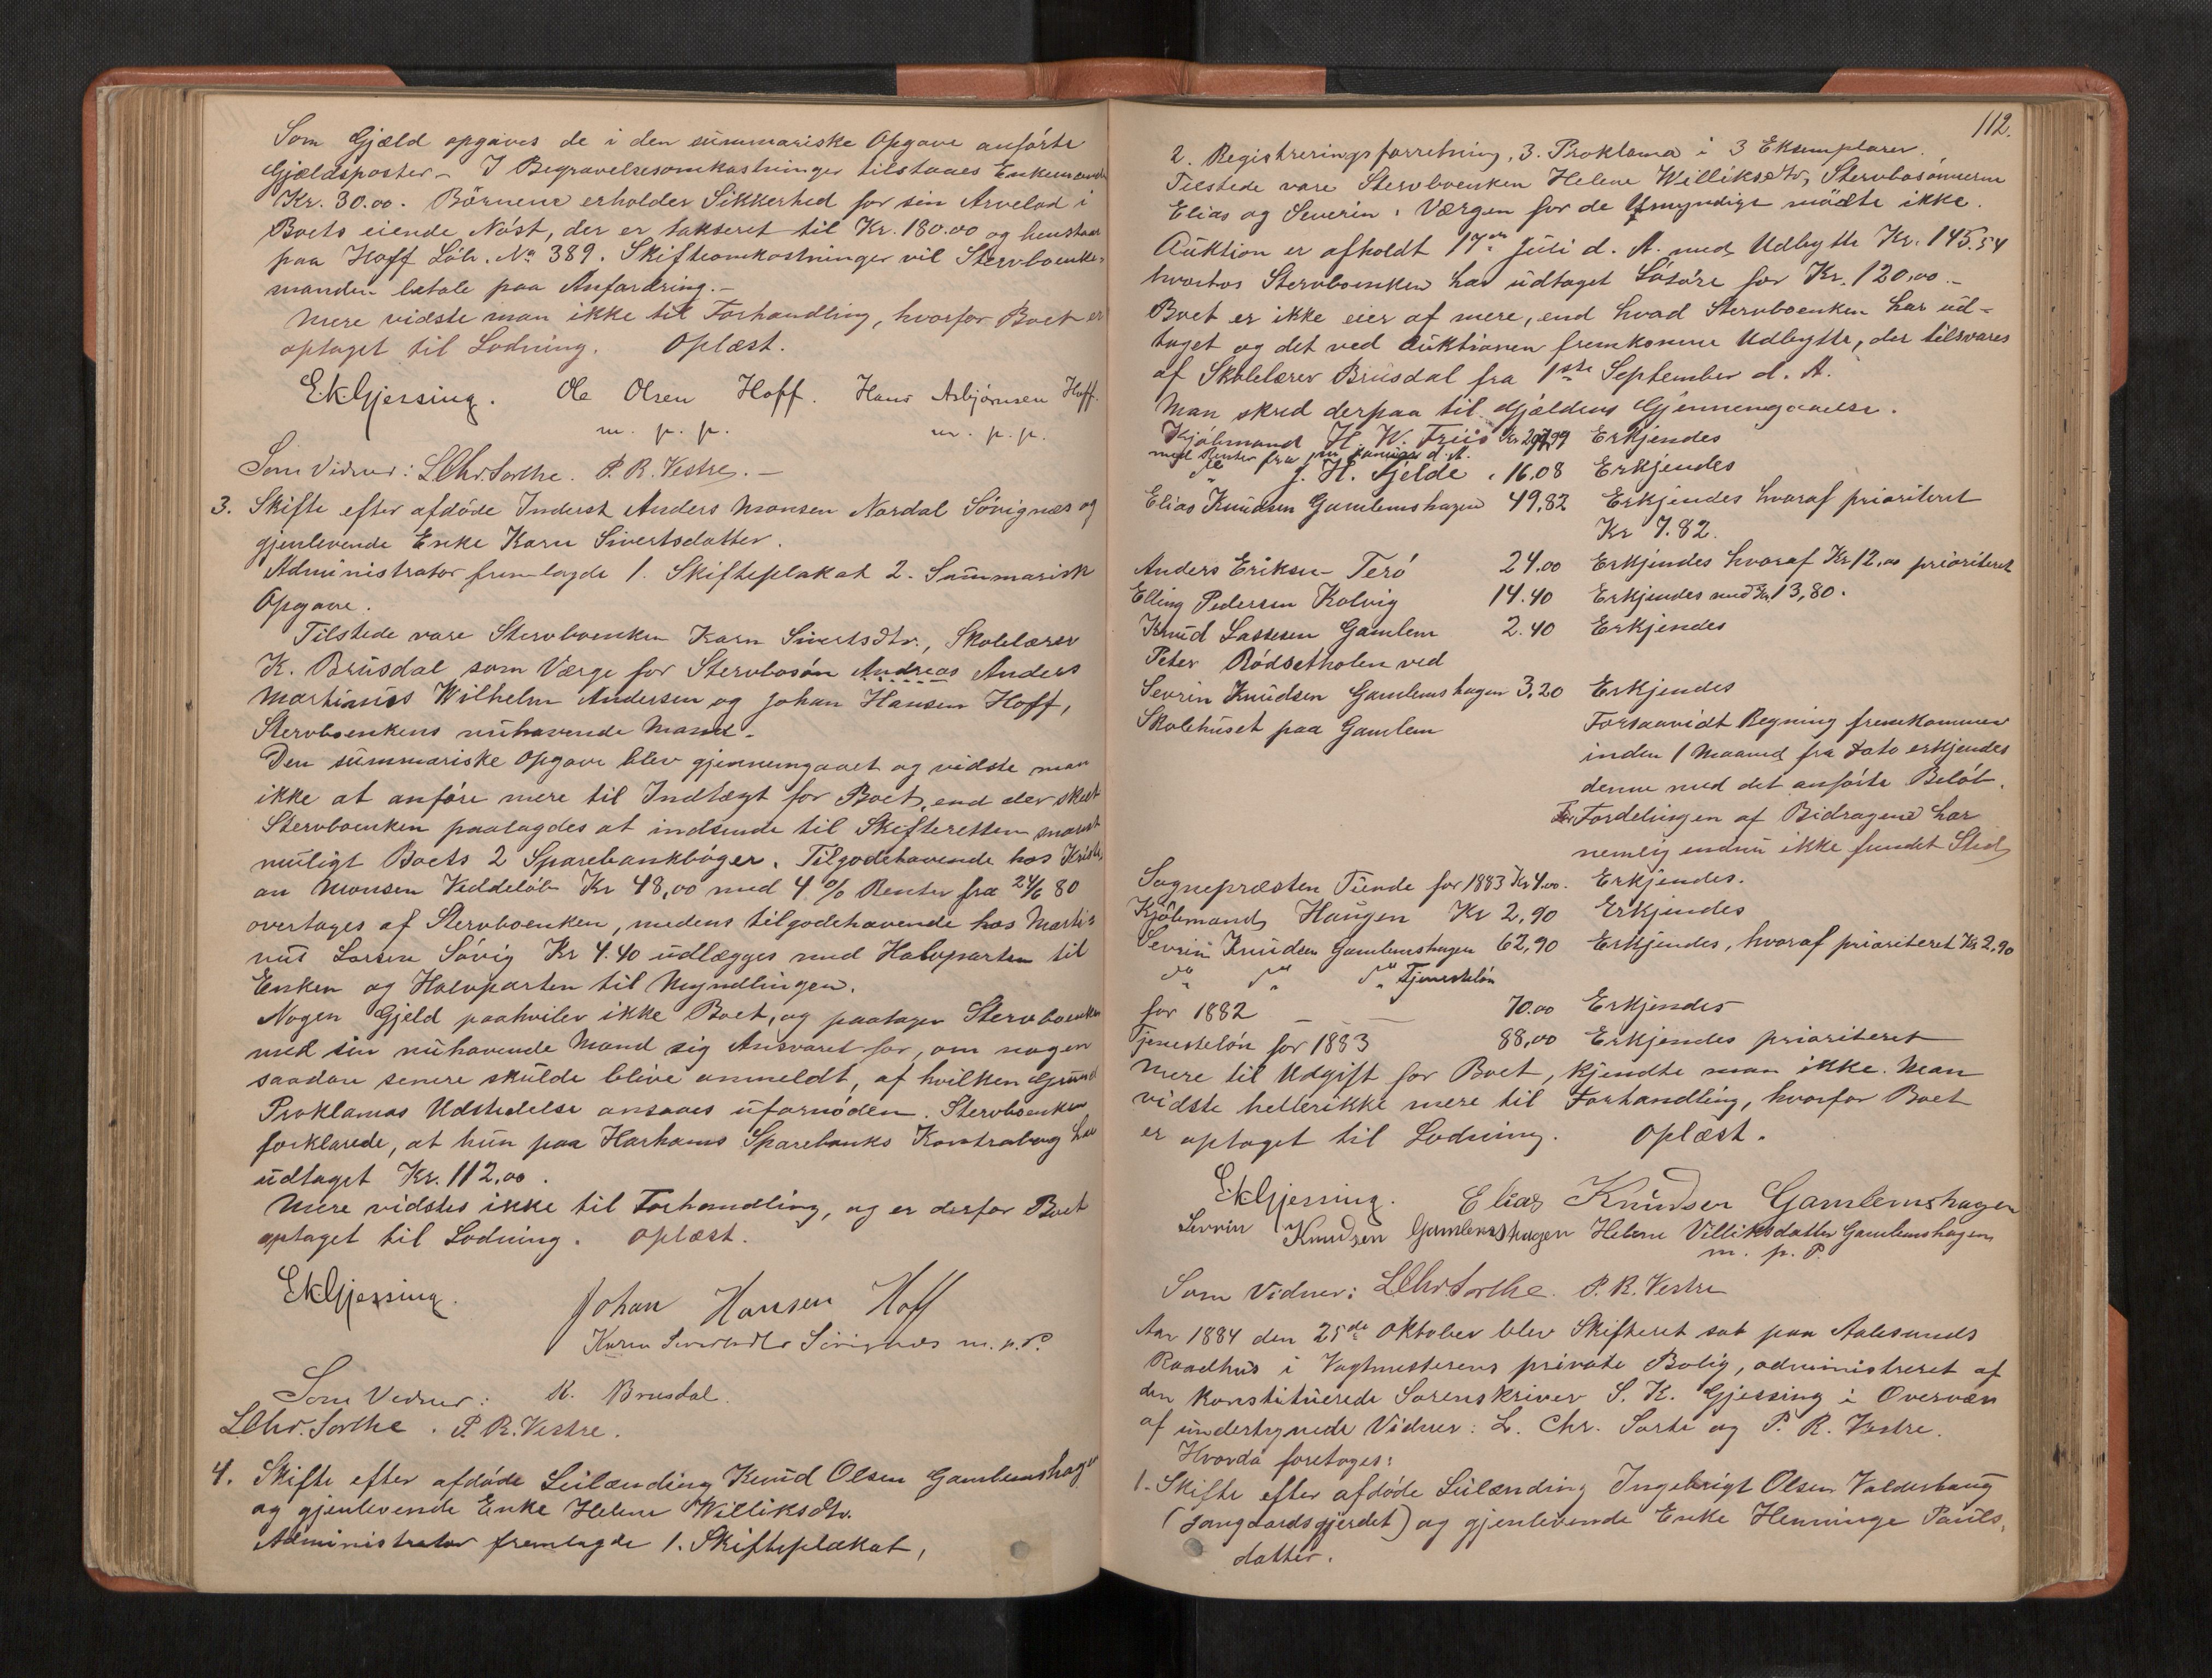 Som Gjæld opgaves de i den summariske Opgave anførte
Gjældsposter – I Begravelsesomkostninger tilstaaes Enkemanden
Kr. 30.00. Börnene erholder Sikkerhed for sin Arvelod i
Boets eiende Nöst, der er takseret til Kr. 180.00 og henstaar
paa Hoff Löb. No 389. Skifteomkostninger vil Stervboenke-
manden betale paa Anfordring.–
Mere vidste man ikke til Forhandling, hvorfor Boet er
optaget til Lodning. Oplæst.
EkGjessing. Ole Olsen Hoff. Hans Asbjörnsen Hoff.
m. p. p. m. p. p.
Som Vidner: LChr. Sorthe. P. R. Vestre. –
3. Skifte efter afdöde Inderst Anders Monsen Nordal Sövignæs og
gjenlevende Enke Karn Sivertsdatter.
Administrator fremlagde 1. Skifteplakat 2. Summarisk
Opgave.
Tilstede vare Stervboenken Karn Sivertsdtr., Skolelærer
K. Brusdal som Værge for Stervbosön Andreas Anders
Martinus Wilhelm Andersen og Johan Hansen Hoff,
Stervboenkens nuhavende Mand.
Den summariske Opgave blev gjennemgaaet og vidste man
ikke at anföre mere til Indtægt for Boet, end der skeet
Stervboenken paalagdes at indsende til Skifteretten snarest
muligt Boets 2 Sparebankböger. Tilgodehavende hos Kristi-
an Monsen Veddelöb Kr 48,00 med 4 % Renter fra 24/6 80
overtages af Stervboenken, medens tilgodehavende hos Marti-
nus Larsen Sövig Kr 4.40 udlægges med Halvparten til
Enken og Halvparten til Myndlingen.
Nogen Gjeld paahviler ikke Boet, og paatager Stervboenken
med sin nuhavende Mand sig Ansvaret for, om nogen
saadan senere skulde blive anmeldt, af hvilken Grund
Proklamas Udstedelse ansaaes ufornöden. Stervboenken
forklarede, at hun paa Harhams Sparebanks Kontrabog har
udtaget Kr. 112,00.
Mere vidstes ikke til Forhandling, og er derfor Boet
optaget til Lodning. Oplæst.
EkGjessing. Johan Hansen Hoff
Karn Sivertsdtr Sövignæs m. p. P.
Som Vidner: K. Brusdal.
LChr. Sorthe. P. R. Vestre.
4. Skifte efter afdöde Leilænding Knud Olsen Gamlemshagen
og gjenlevende Enke Helene Williksdtr.
Administrator fremlagde 1. Skifteplakat,
112.
2. Registreringsforretning, 3. Proklama i 3 Eksemplarer.
Tilstede vare Stervboenken Helene Williksdtr, Stervbosönnerne
Elias og Severin. Værgen for de Umyndige mödte ikke.
Auktion er afholdt 17de Juli d. A. med Udbytte Kr. 145.54
hvorhos Stervboenken har udtaget Lösöre for Kr. 120,00.–
Boet er ikke eier af mere, end hvad Stervboenken har ud-
taget og det ved Auktionen fremkomne Udbytte, der tilsvares
af Skolelærer Brusdal fra 1ste September d. A.
Man skred derpaa til Gjældens Gjennemgaaelse.
Kjöbmand H. W. Friis Kr 297,99 Erkjendes
med Renter fra Januar d. A.
do J. H. Fjelde . 16,08 Erkjendes
Elias Knudsen Gamlemshagen 49,82 Erkjendes hvoraf prioriteret
Kr 7.82.
Anders Eriksen Terö 24.00 Erkjendes hvoraf Kr 12,00 prioriteret
Elling Pedersen Kolvig 14.40 Erkjendes med Kr. 13,80.
Knud Lassesen Gamlem 2.40 Erkjendes
Peter Rödsetholen ved
Sevrin Knudsen Gamlemshagen 3,20 Erkjendes
Skolehuset paa Gamlem Forsaavidt Regning fremkommer
inden 1 Maaned fra Dato erkjendes
denne med det anförte Belöb.
Fordelingen af Bidragene har
nemlig endnu ikke fundet Sted
Sognepræsten Tiende for 1883 Kr 4.00. Erkjendes.
Kjöbmand Haugen Kr 2,90 Erkjendes
Sevrin Knudsen Gamlemshagen 62,90 Erkjendes, hvoraf prioriteret Kr 2,90
do do do Tjenestelön
for 1882 70.00 Erkjendes
Tjenestelön for 1883 88,00 Erkjendes prioriteret
Mere til Udgift for Boet, kjendte man ikke. Man
vidste hellerikke mere til Forhandling, hvorfor Boet
er optaget til Lodning. Oplæst.
EkGjessing. Elias Knudsen Gamlemshagen
Sevrin Knudsen Gamlemshagen Helene Villiksdatter Gamlemshagen
m. p. P.
Som Vidner: LChr. Sorthe. P. R. Vestre
Aar 1884 den 25de Oktober blev Skifteret sat paa Aalesunds
Raadhus i Vagtmesterens private Bolig, administreret af
den konstituerede Sorenskriver S. K. Gjessing i Overvær
af undertegnede Vidner: L. Chr. Sorte og P. R. Vestre.
Hvorda foretoges:
1. Skifte efter afdöde Leilænding Ingebrigt Olsen Valderhaug
(Jangaardsgjerdet) og gjenlevende Enke Henninge Pauls-
datter.